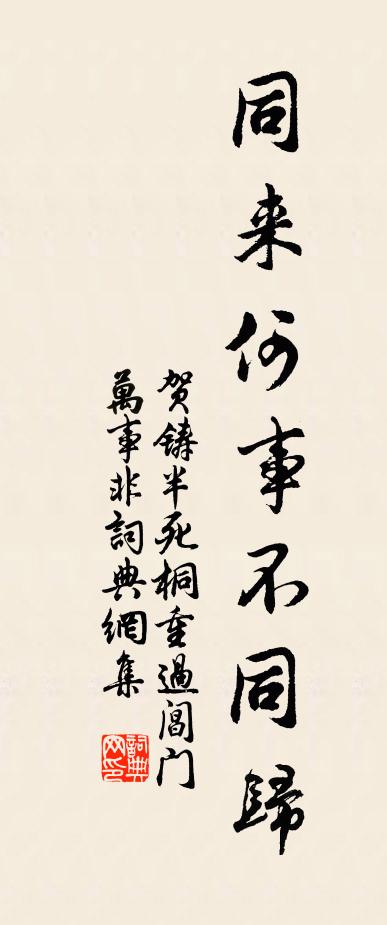 同来何事不同歸
贺铸半死桐重過閶门
萬事非詞典網集
詞典网印